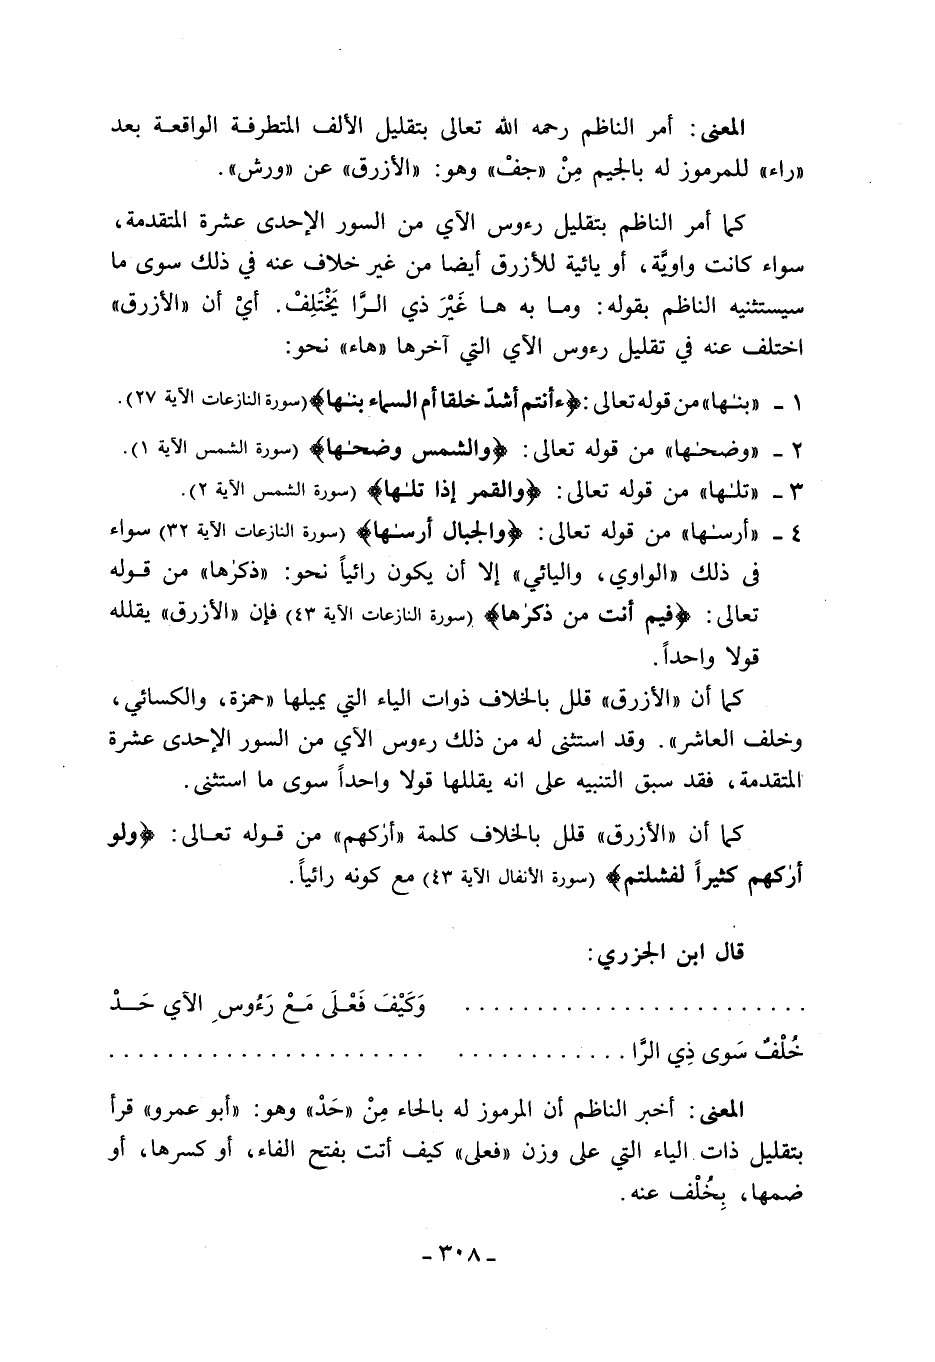 المعنى: أمر الناظم رحمه الله تعالى بتقليل الألف المتطرفة الواقعة بعد
«راء» للمرموز له بالجيم مِنْ «جفْ» وهو: «الأزرق» عن «ورش».
كما أمر الناظم بتقليل رءوس الآي من السور الإحدى عشرة المتقدمة،
سواء كانت واويَّة، أو يائية للأزرق أيضا من غير خلاف عنه في ذلك سوى ما
سيستثنيه الناظم بقوله: وما به ها غَيْرَ ذي الرَّا يَخْتَلِفْ. أيْ أن «الأزرق»
اختلف عنه في تقليل رءوس الآي التي آخرها «هاء» نحو:
١ - «بنٰها» من قوله تعالى: ﴿ءأنتم أشدّ خلقا أم السماء بنٰها﴾ (سورة النازعات الآية ٢٧).
٢ - «وضحٰها» من قوله تعالى: ﴿والشمس وضحٰها﴾ (سورة الشمس الآية ١).
٣ - «تلٰها» من قوله تعالى: ﴿والقمر إذا تلٰها﴾ (سورة الشمس الآية ٢).
٤ - «أرسٰها» من قوله تعالى: ﴿والجبال أرسٰها﴾ (سورة النازعات الآية ٣٢) سواء
فى ذلك «الواوي، واليائي» إلا أن يكون رائياً نحو: «ذكرٰها» من قوله
تعالى: ﴿فيم أنت من ذكرٰها﴾ (سورة النازعات الآية ٤٣) فإن «الأزرق» يقلله
قولا واحداً.
كما أن «الأزرق» قلل بالخلاف ذوات الياء التي يميلها «حمزة، والكسائي،
وخلف العاشر». وقد استثنى له من ذلك رءوس الآي من السور الإحدى عشرة
المتقدمة، فقد سبق التنبيه على انه يقللها قولا واحداً سوى ما استثنى.
كما أن «الأزرق» قلل بالخلاف كلمة «أرٰكهم» من قوله تعالى: ﴿ولو
أرٰكهم كثيراً لفشلتم﴾ (سورة الأنفال الآية ٤٣) مع كونه رائياً.
قال ابن الجزري:
........................ وَكَيْفَ فَعْلَى مَعْ رَءُوسِ الآي حَدْ
خُلْفٌ سَوى ذِي الرَّا ............ ......................
المعنى: أخبر الناظم أن المرموز له بالحاء مِنْ «حَدْ» وهو: «أبو عمرو» قرأ
بتقليل ذات الياء التي على وزن «فعلى» كيف أتت بفتح الفاء، أو كسرها، أو
ضمها، بِخُلْف عنه.
- ٣٠٨ -